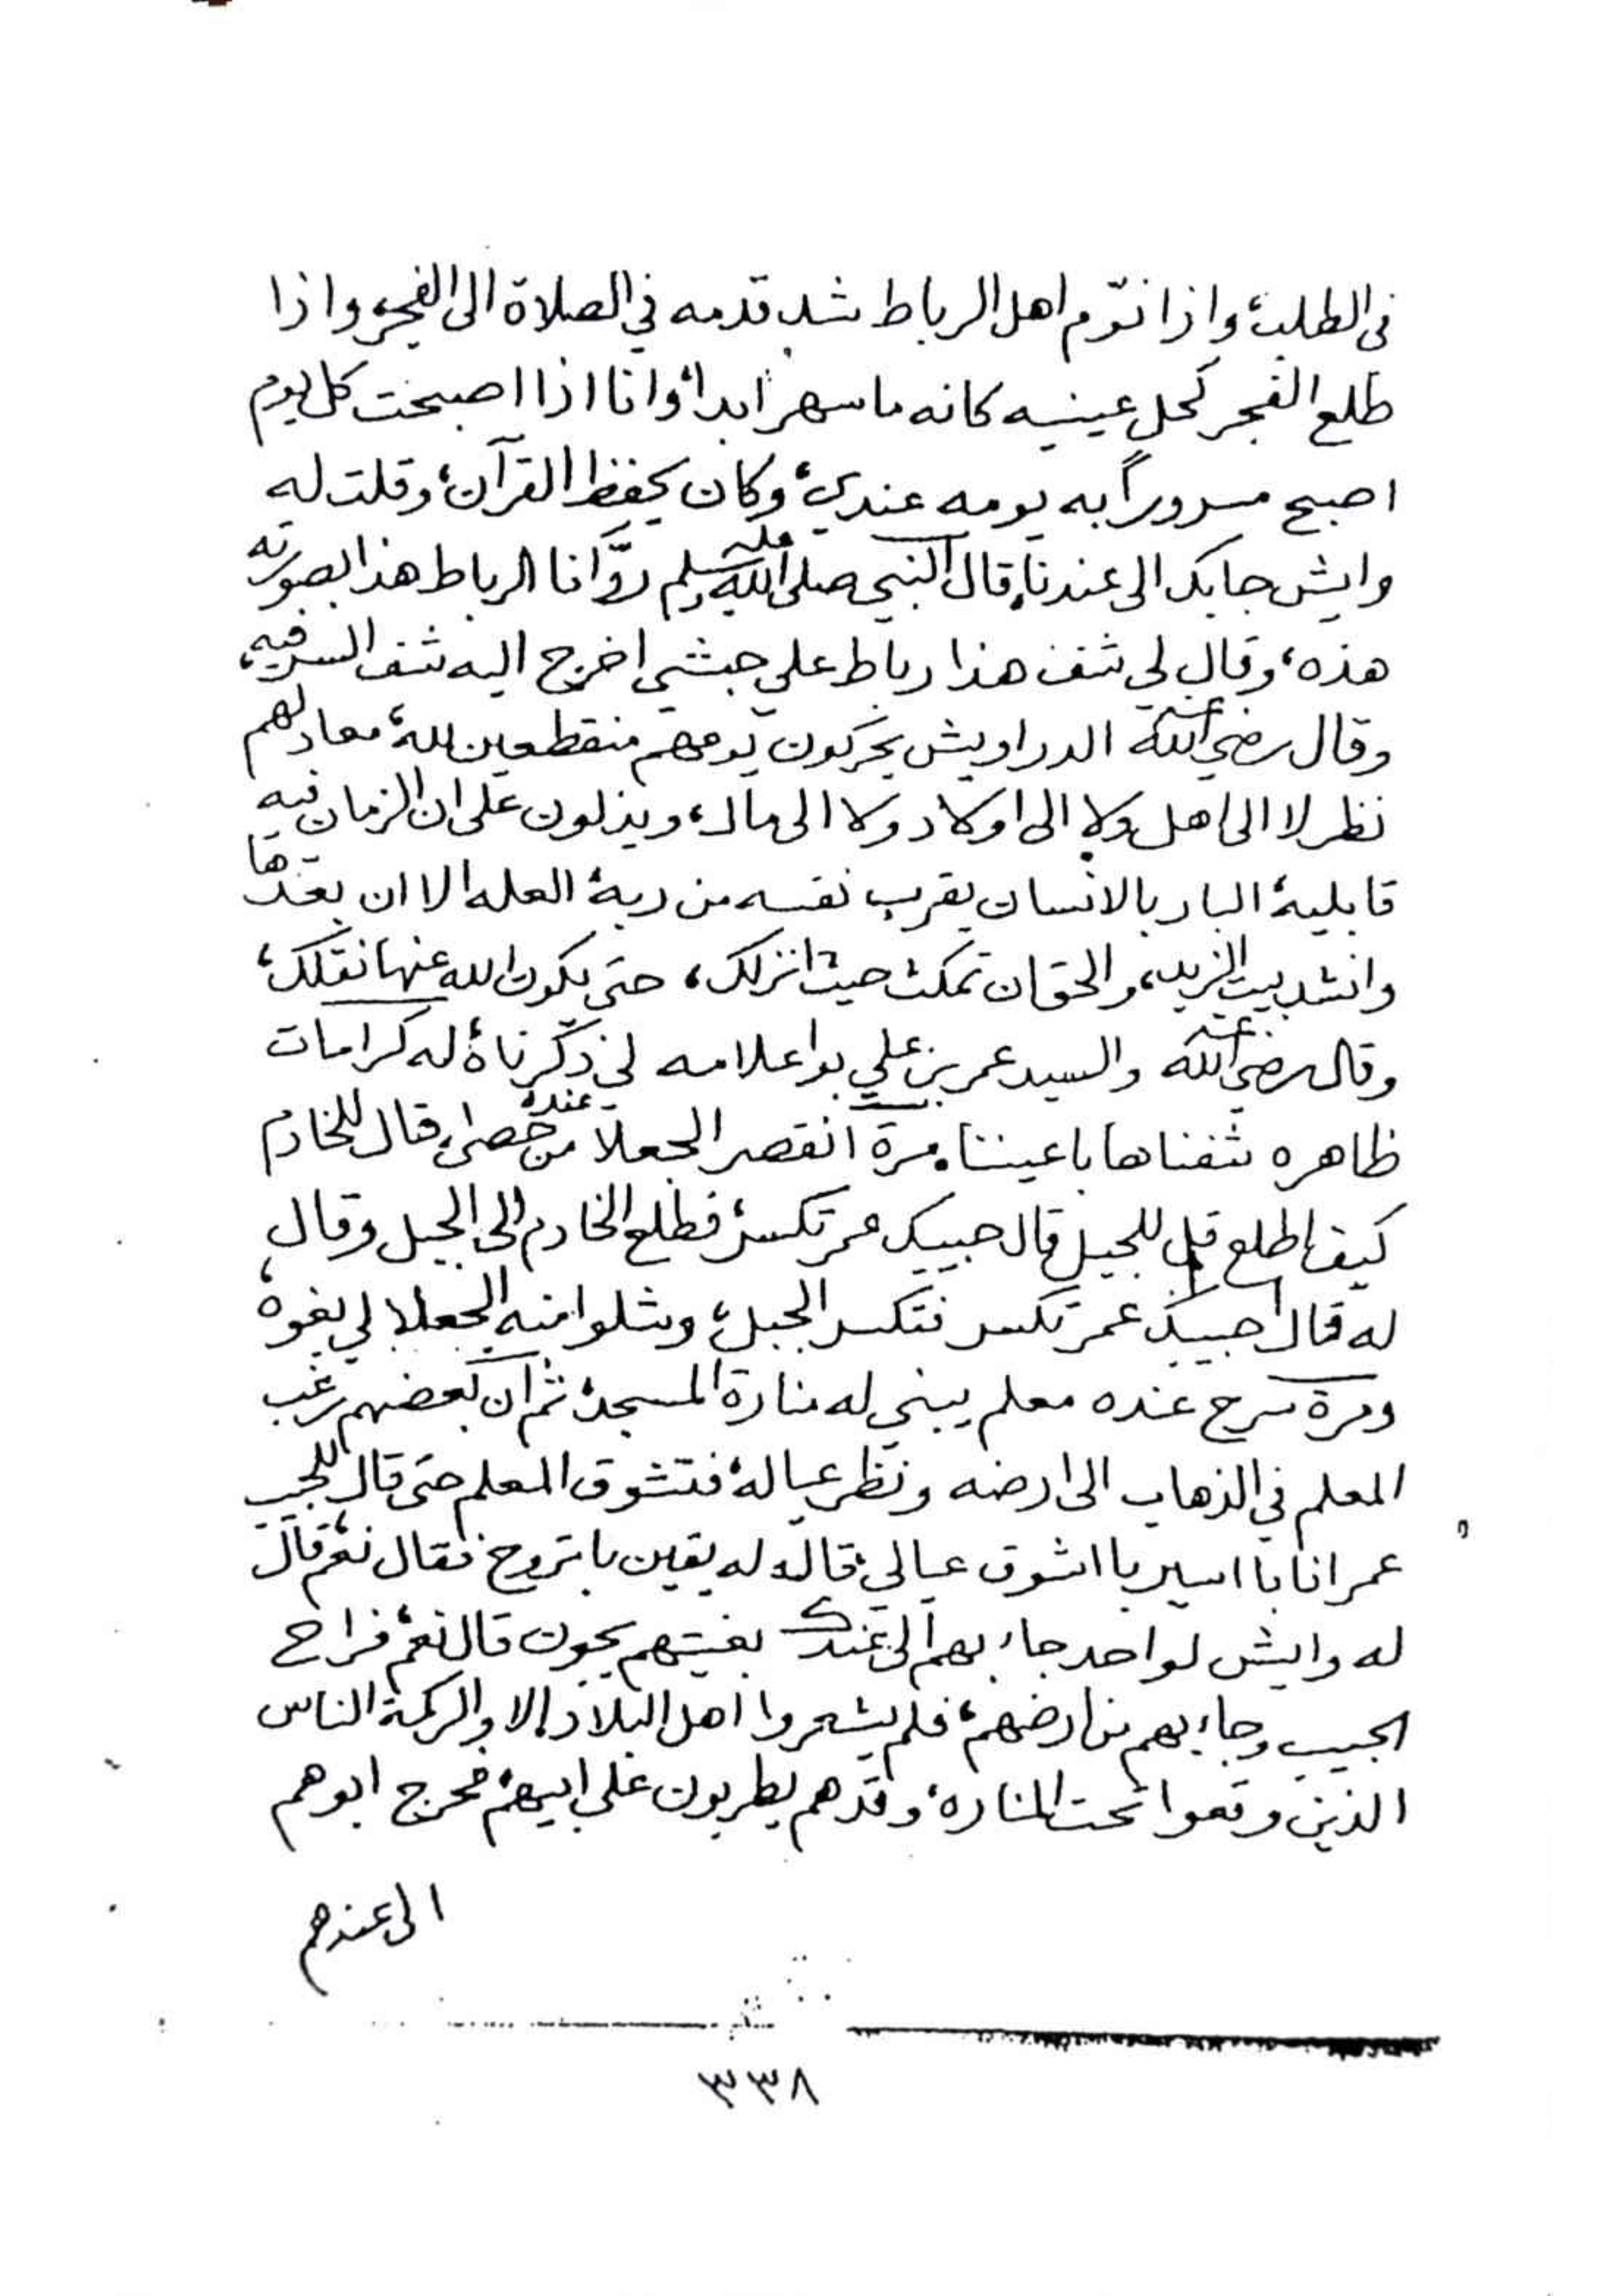 في الطلب، واذا نوّم اهل الرباط شد قدمه في الصلاة الى الفجر، واذا
طلع الفجر كحل عينيه كانه ما سهر ابداً، وانا اذا اصبحت كل يوم
اصبح مسروراً به يومه عندي، وكان يحفظ القرآن، وقلت له
وايش جابك الى عندنا، قال النبي صلى الله عليه وسلم روّانا الرباط هذا بصورته
هذه، وقال لي شف هذا رباط علي حبشي اخرج اليه شف السر فيه،
وقال رضي الله عنه الدراويش يحركون يومهم منقطعين لله، معاد لهم
نظر لا الى اهل ولا الى اولاد ولا الى مال، ويذلون على ان الزمان فيه
قابلية البار بالانسان يقرب نفسه من العله الا ان
وانشد بيت الزبد، والحق ان تمكث حيث انزلك، حتى يكون الله عنها نقلك،
وقال رضي الله عنه والسيد عمر بن علي بو اعلامه لي ذكّرناه له كرامات
ظاهره شفناها باعيننا، مرة انقصر الجعلا من عنده حصى، قال للخادم
كيف اطلع قل للجبل قال حبيبك عمر تكسر، فطلع الخادم الى الجبل وقال
له قال حبيبك عمر تكسر فتكسر الجبل، وشلوا منه الجعلا لي يغوه،
ومرة سرح عنده معلم يبني له منارة المسجد، ثم ان بعضهم رغب
المعلم في الذهاب الى ارضه ونظر عياله، فتشوق المعلم حتى قال للحبيب
عمر انا با اسير با اشوف عيالي، قال له يقين باتروح فقال نعم، قال
له وايش لو احد جاء بهم الى عندك بغيتهم يجون قال نعم، فراح
الحبيب وجاء بهم من ارضهم، فلم يشعروا اهل البلاد إلا والركبة الناس
الذين وقعوا تحت المناره، وقدهم يطربون على ابيهم، فخرج ابوهم
الى عندهم
٣٣٨